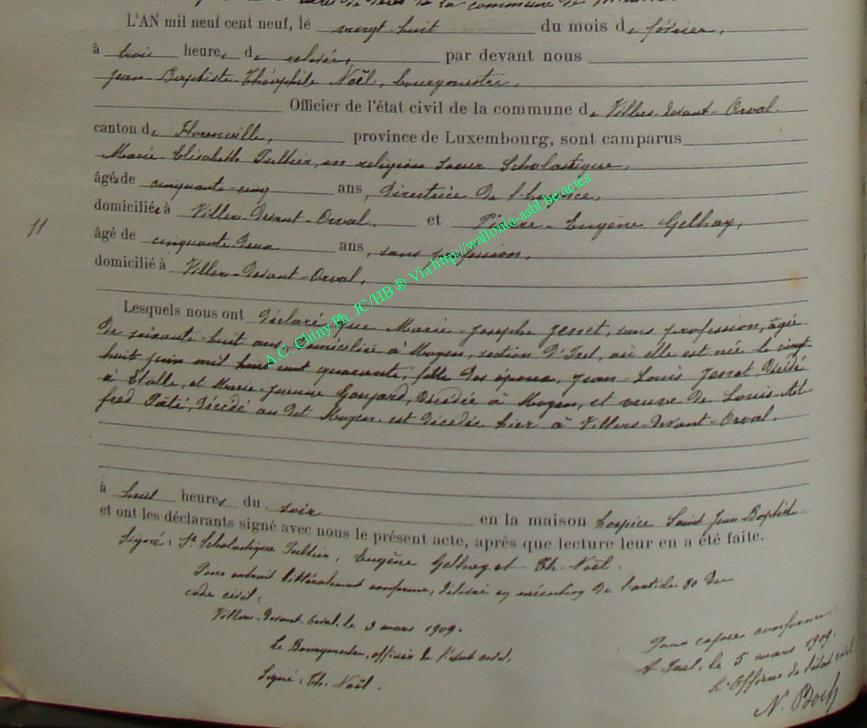 de la commune de
L'AN mil neuf cent neuf, le vingt-huit du mois de février,
à trois heures de relevée, par devant nous
Jean-Baptiste-Théophile Noël, bourgmestre,
Officier de l'état civil de la commune de Villers-devant-Orval
canton de Florenville, province de Luxembourg, sont comparus
Marie-Elisabeth Tullier, en religion soeur Scholastique,
âgée de cinquante-cinq ans, Directrice de l'hospice,
domiciliée à Villers-Devant-Orval, et Pierre-Eugène Gelhay,
11
âgé de cinquante deux ans, sans profession,
domicilié à Villers-Devant-Orval,
A.C. Chiny Ph. JC/HB ® Via http://wallonia-asbl.be/actes
Lesquels nous ont déclaré que Marie-Josephe Jenet, sans profession, âgée
de soixante-huit ans, domiciliée à Moyen, section d'Izel, où elle est née le vingt
huit juin mil huit cent quarante, fille des époux Jean-Louis Jenet, décédé
à Etalle, et Marie-Jeanne décédée à Moyen, et veuve de Louis-Al-
fred Pâté, décédé au dit Moyen, est décédée hier à Villers-devant-Orval,
à huit heures du soir en la maison hospice Saint Jean-Baptiste
et ont les déclarants signé avec nous le présent acte, après que lecture leur en a été faite.
Signé: Sr Scholastique Tullier, Eugène Gelhay et Th. Noël.
Pour extrait littéralement conforme, délivré en exécution de l'article 80 du
code civil.
Villers-Devant-Orval, le 3 mars 1909.
Le Bourgmestre, officier de l'état civil,
Signé: Th. Noël.
Pour copie conforme:
A Izel, le 5 mars 1909.
L'Officier de l'état civil
N. Boch